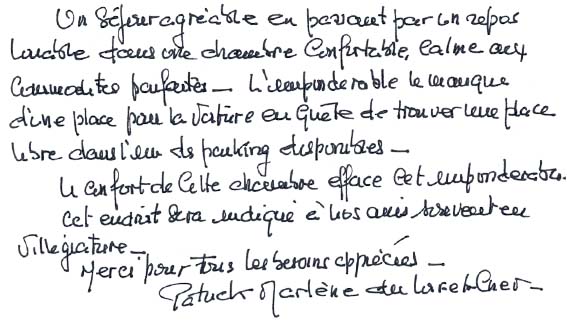 Un séjour agréable en passant par un repas
louable dans une chambre confortable, calme aux
commodités parfaites - L'impondérable le manque
d'une place pour la voiture en quête de trouver une place
libre dans l'un des parking disponibles -
Le confort de cette chambre efface cet impondérable.
Cet endroit sera indiqué à nos amis souvent en
villégiature -
Merci pour tous les besoins appréciés -
Patrick Marlène du